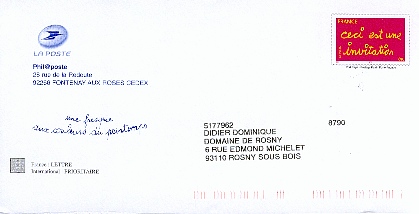 LA POSTE
Phil@poste
25 rue de la Redoute
92266 FONTENAY AUX ROSES CEDEX
FRANCE
ceci est une
invitation
une fresque
aux couleurs du printemps
5177962 8790
DIDIER DOMINIQUE
DOMAINE DE ROSNY
6 RUE EDMOND MICHELET
93110 ROSNY SOUS BOIS
France : LETTRE
International : PRIORITAIRE